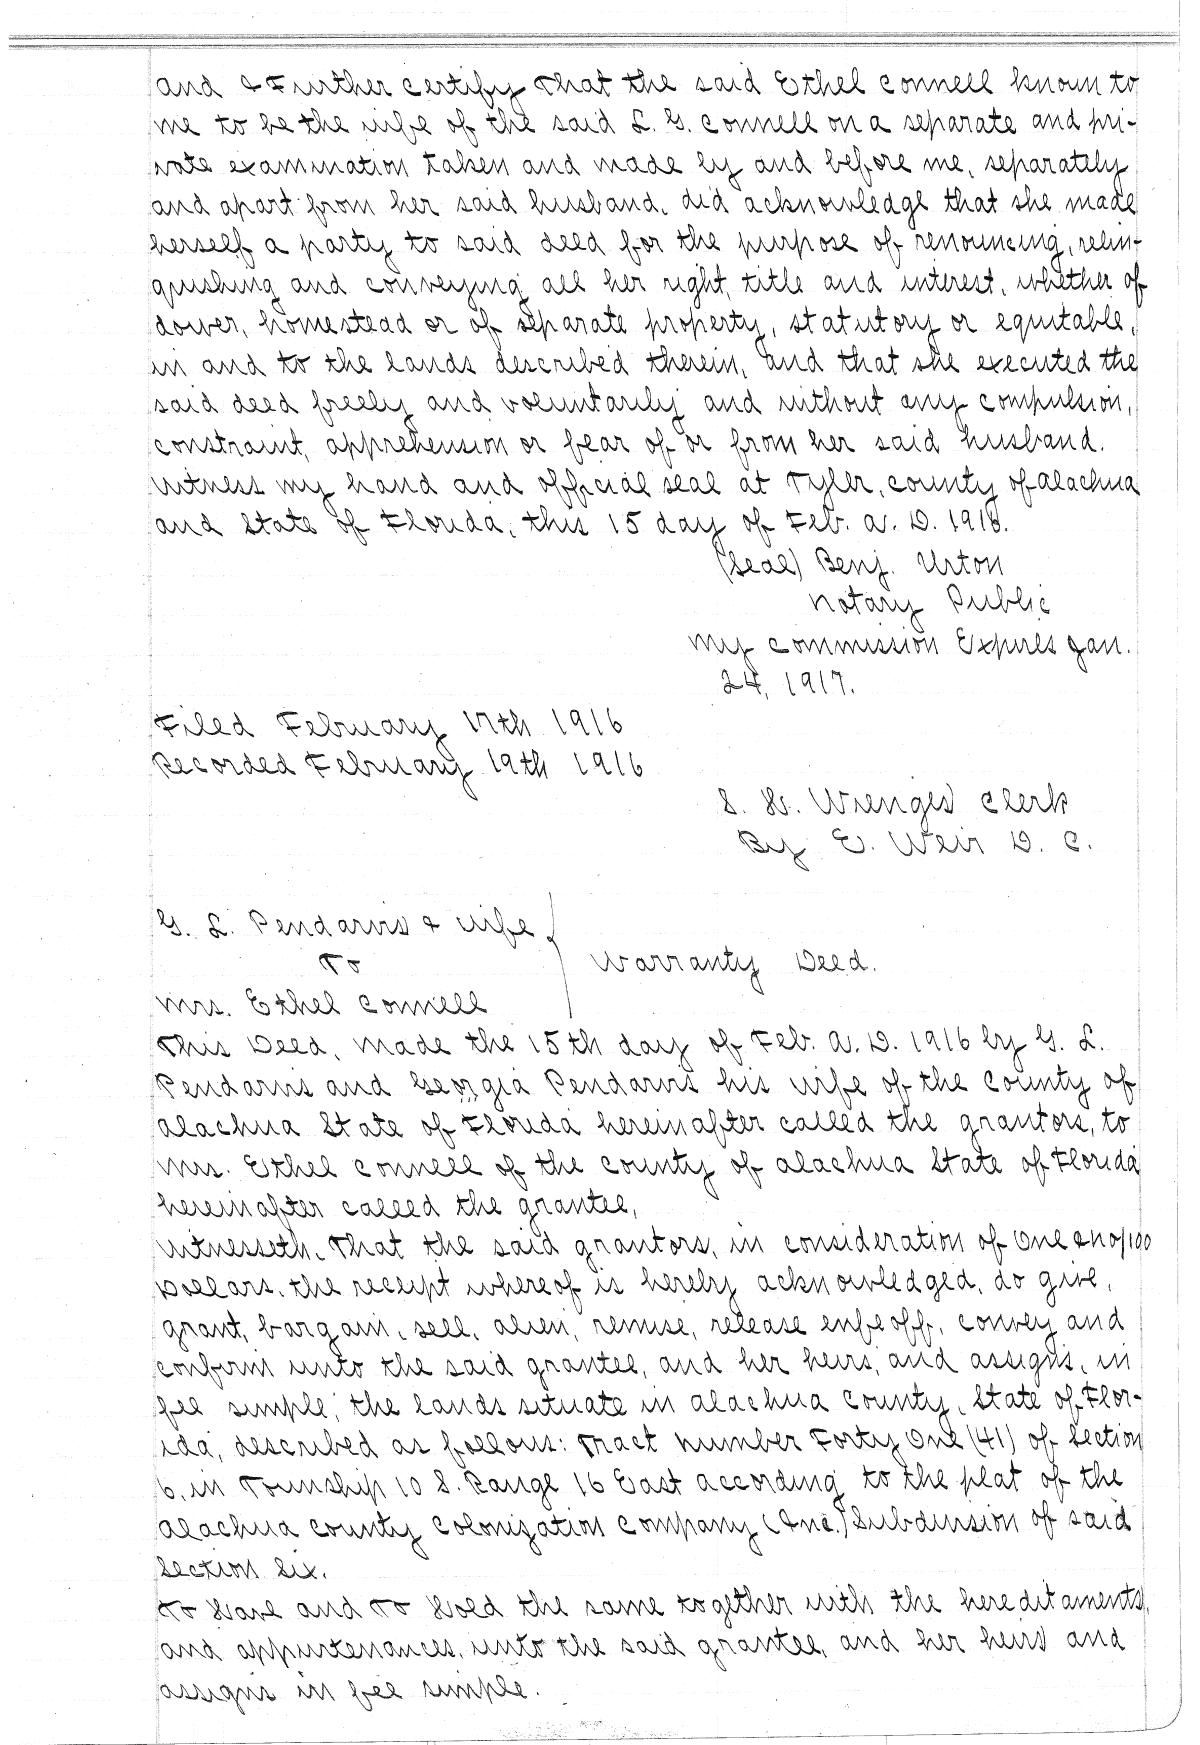 and I Further certify That the said Ethel Connell known to
me to be the wife of the said L. G. Connell on a separate and pri-
vate examination taken and made by and before me, separately
and apart from her said husband, did acknowledge that she made
herself a party to said deed for the purpose of renouncing, relin-
quishing and conveying all her right, title and interest, whether of
dower, homestead or of separate property, statutory or equitable,
in and to the lands described therein, and that she executed the
said deed freely and voluntarily and without any compulsion,
constraint, apprehension or fear of or from her said husband.
Witness my hand and official seal at Tyler, County of Alachua
and State of Florida, this 15 day of Feb. A. D. 1916.
(Seal) Benj. Urton
Notary Public
My Commission Expires Jan.
24, 1917.
Filed February 17th 1916
Recorded February 19th 1916
S. H. Wienges Clerk
By E. Weir D. C.
G. L. Pendarvis & wife
To
Warranty Deed.
Mrs. Ethel Connell
This Deed, Made the 15th day of Feb. A. D. 1916 by G. L.
Pendarvis and Georgia Pendarvis his wife of the County of
Alachua State of Florida hereinafter called the grantors, to
Mrs. Ethel Connell of the County of Alachua State of Florida
hereinafter called the grantee,
Witnesseth, That the said grantors, in consideration of One & no/100
Dollars, the receipt whereof is hereby acknowledged, do give,
grant, bargain, sell, alien, remise, release enfeoff, convey and
confirm unto the said grantee, and her heirs, and assigns, in
fee simple, the lands situate in Alachua County, State of Flor-
ida, described as follows: Tract number Forty One (41) of Section
6, in Township 10 S. Range 16 East according to the plat of the
Alachua County Colonization Company (Inc.) Subdivision of said
Section Six.
To Have and To Hold the same together with the hereditaments,
and appurtenances, unto the said grantee, and her heirs and
assigns in fee simple.